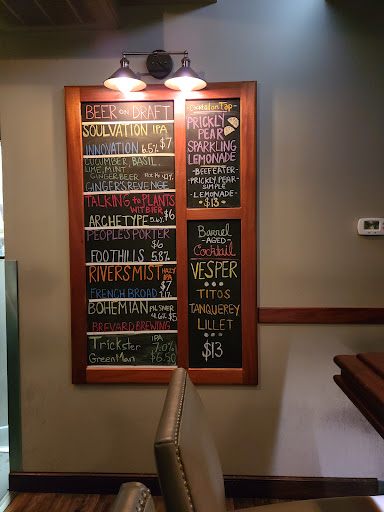 BEER on DRAFT
SOULVATION IPA
INNOVATION 6.5% $7
CUCUMBER, BASIL
LIME, MINT
GINGER BEER
GINGER'S REVENGE
TALKING to PLANTS
WITBIER $6
ARCHETYPE
PEOPLE'S PORTER
$6
FOOTHILLS 5.8%
RIVERS MIST HAZY IPA
$7
FRENCH BROAD
BOHEMIAN PILSNER
BREVARD BREWING $5
Trickster IPA 7.0%
Green Man $6.50
Cocktail on Tap
PRICKLY
PEAR
SPARKLING
LEMONADE
- BEEFEATER -
- PRICKLY PEAR -
SIMPLE
- LEMONADE -
$13
Barrel
- AGED -
Cocktail
VESPER
- TITOS -
TANQUEREY
LILLET
$13